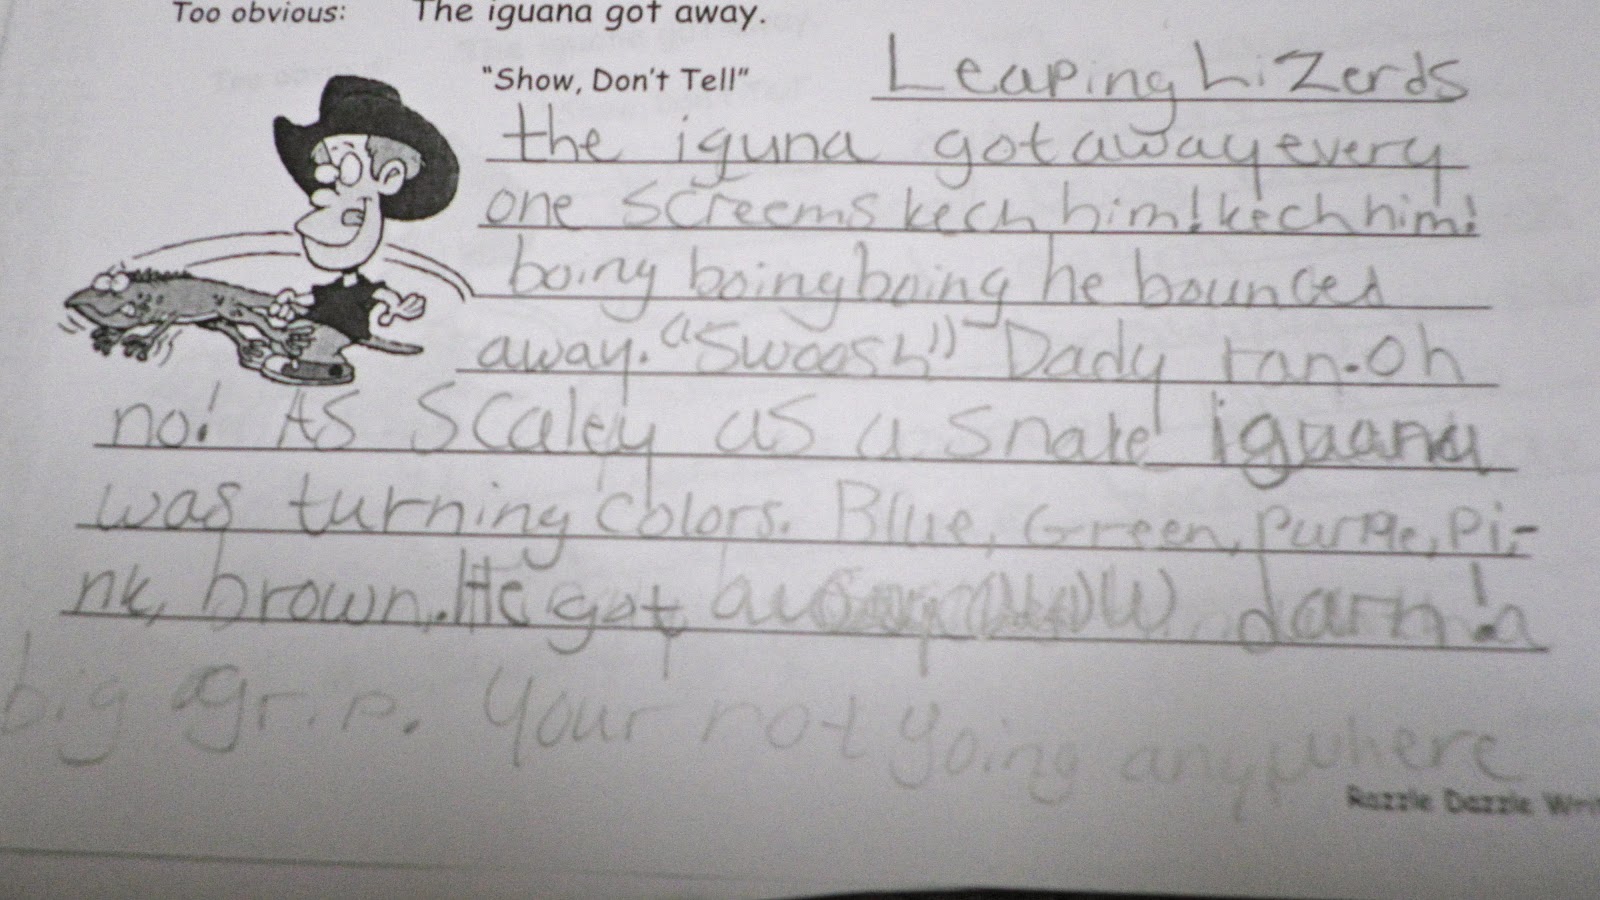 Too obvious: The iguana got away.
"Show, Don't Tell" Leaping Lizerds
the iguna got away every
one screems kech him! kech him!
boing boing boing he bounced
away. "Swoosh" Dady ran. Oh
no! As Scaley as a snake iguana
was turning colors. Blue, Green, Purple, Pi-
nk, brown. He got darn! a
big grip. Your not going anywhere
Razzle Dazzle